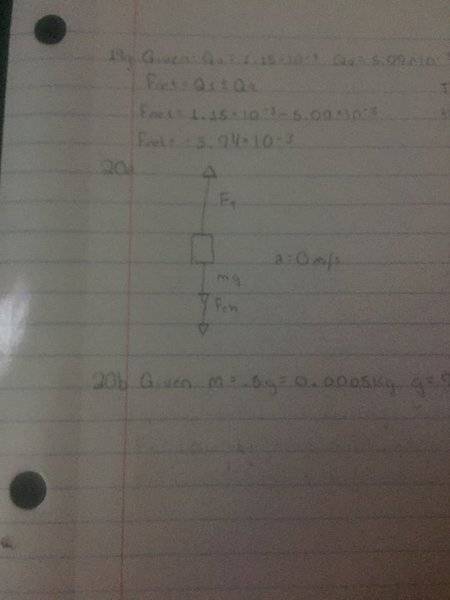 Given: Q₁=1.15×10⁻³ Q₂=5.09×10⁻³
Fnet=Q₁±Q₂
Fnet=1.15×10⁻³-5.09×10⁻³
Fnet=-3.94×10⁻³
20a
F
a=0m/s
mg
20b Given m=.5g=0.0005kg g=